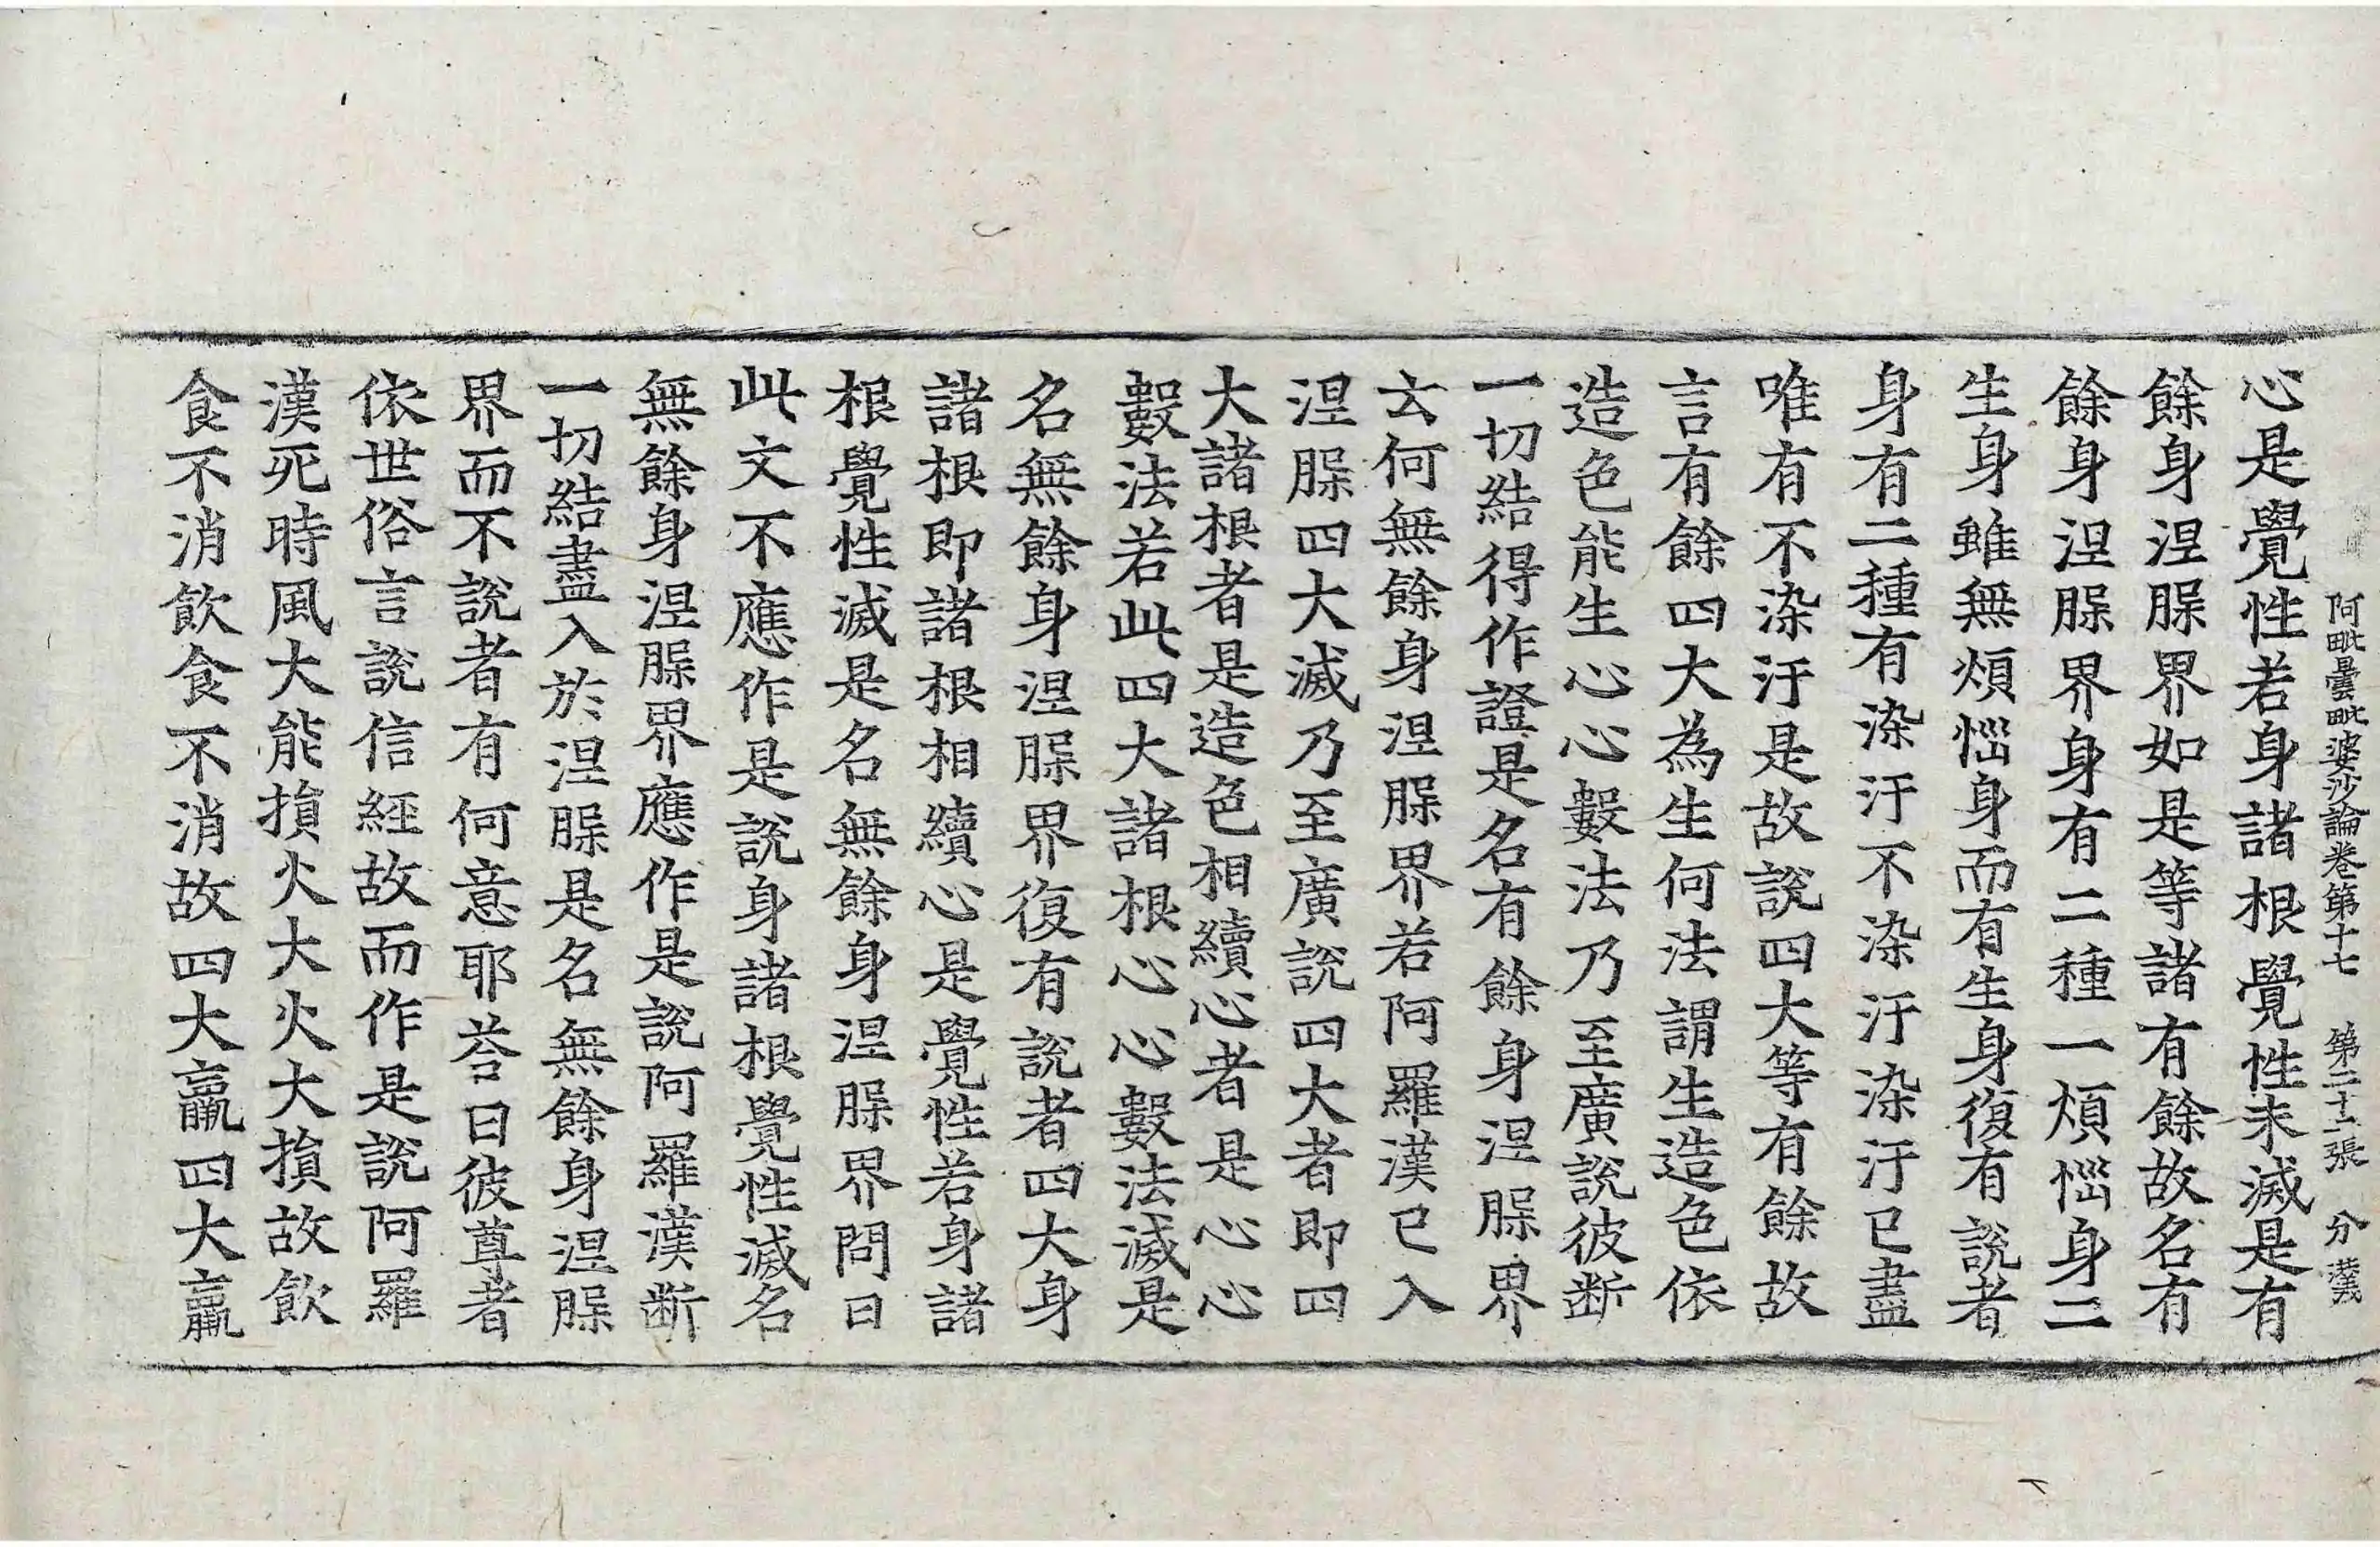 阿毗曇毗婆沙論卷第十七 第二十二張 分 羛
心是覺性若身諸根覺性未滅是有
餘身涅槃界如是等諸有餘故名有
餘身涅槃界身有二種一煩惱身二
生身雖無煩惱身而有生身復有說者
身有二種有染汙不染汙染汙已盡
唯有不染汙是故說四大等有餘故
言有餘四大為生何法謂生造色依
造色能生心心數法乃至廣說彼断
一切結得作證是名有餘身涅槃界
云何無餘身涅槃界若阿羅漢已入
涅槃四大滅乃至廣說四大者即四
大諸根者是造色相續心者是心心
數法若此四大諸根心心數法滅是
名無餘身涅槃界復有說者四大身
諸根即諸根相續心是覺性若身諸
根覺性滅是名無餘身涅槃界問曰
此文不應作是說身諸根覺性滅名
無餘身涅槃界應作是說阿羅漢断
一切結盡入於涅槃是名無餘身涅槃
界而不說者有何意耶荅曰彼尊者
依世俗言說信經故而作是說阿羅
漢死時風大能損火大火大損故飲
食不消飲食不消故四大羸四大羸